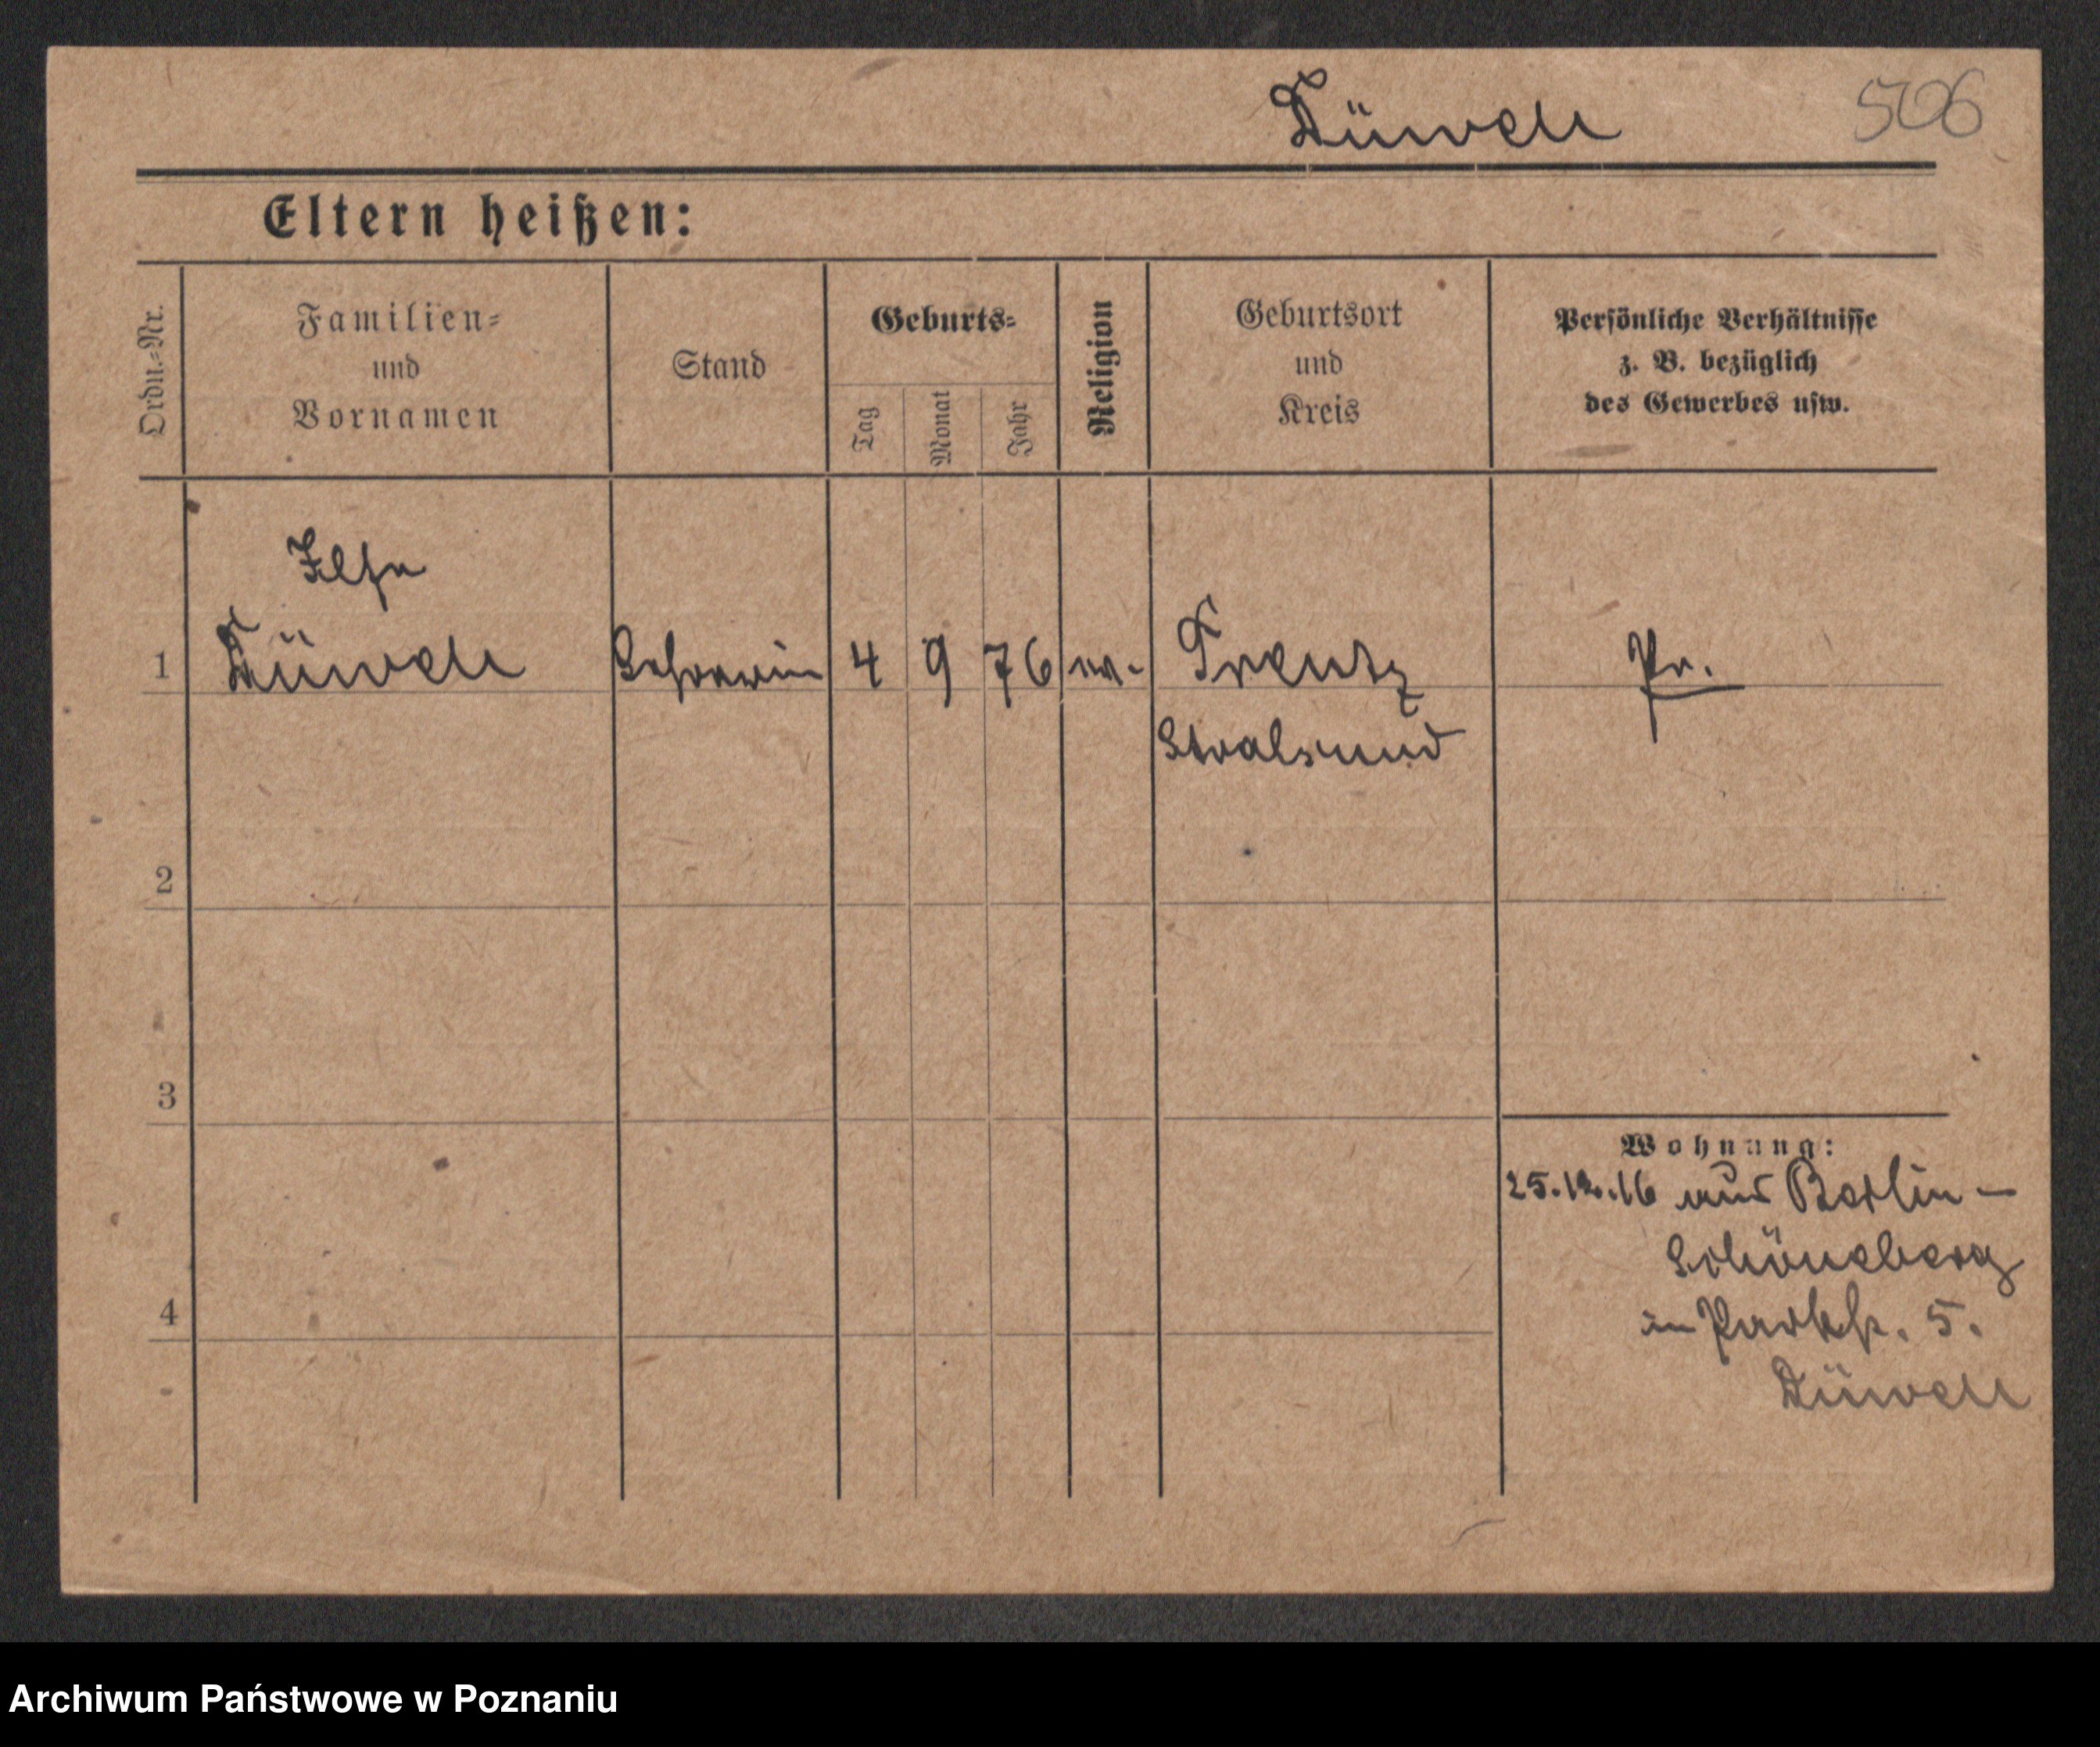 Düwell
506
Eltern heißen:
Ordn.-Nr.
Familien-
und
Vornamen
Stand
Geburts-
Tag
Monat
Jahr
Religion
Geburtsort
und
Kreis
Persönliche Verhältnisse
z. B. bezüglich
des Gewerbes usw.
Ilse
1 Düwell 4 9 76 ev. Pr.
Stralsund
2
3
4
Wohnung:
25.12.16 aus Berlin-
Schöneberg
in Parkstr. 5.
Düwell
Archiwum Państwowe w Poznaniu